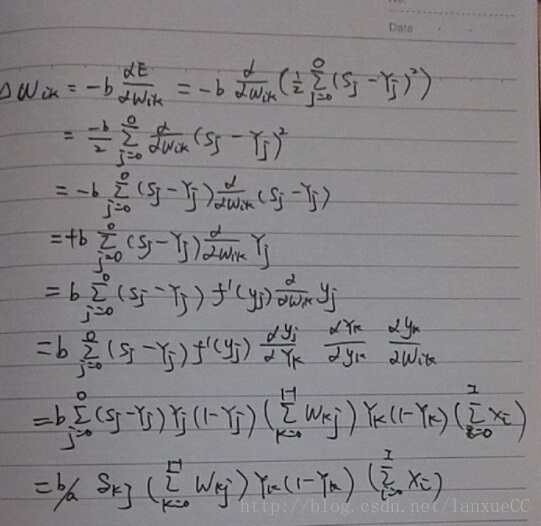 No.
Date
ΔWik = -b ∂E/∂Wik = -b ∂/∂Wik (1/2 Σ_{j=0}^{O} (Sj - Yj)²)
= -b/2 Σ_{j=0}^{O} ∂/∂Wik (Sj - Yj)²
= -b Σ_{j=0}^{O} (Sj - Yj) ∂/∂Wik (Sj - Yj)
= +b Σ_{j=0}^{O} (Sj - Yj) ∂/∂Wik Yj
= b Σ_{j=0}^{O} (Sj - Yj) f'(yj) ∂/∂Wik yj
= b Σ_{j=0}^{O} (Sj - Yj) f'(yj) ∂yj/∂Yk ∂Yk/∂yk ∂yk/∂Wik
= b Σ_{j=0}^{O} (Sj - Yj) Yj (1 - Yj) (Σ_{k=0}^{H} Wkj) Yk (1 - Yk) (Σ_{i=0}^{I} Xi)
= b/a Skj (Σ_{k=0}^{H} Wkj) Yk (1 - Yk) (Σ_{i=0}^{I} Xi)
http://blog.csdn.net/lanxueCC